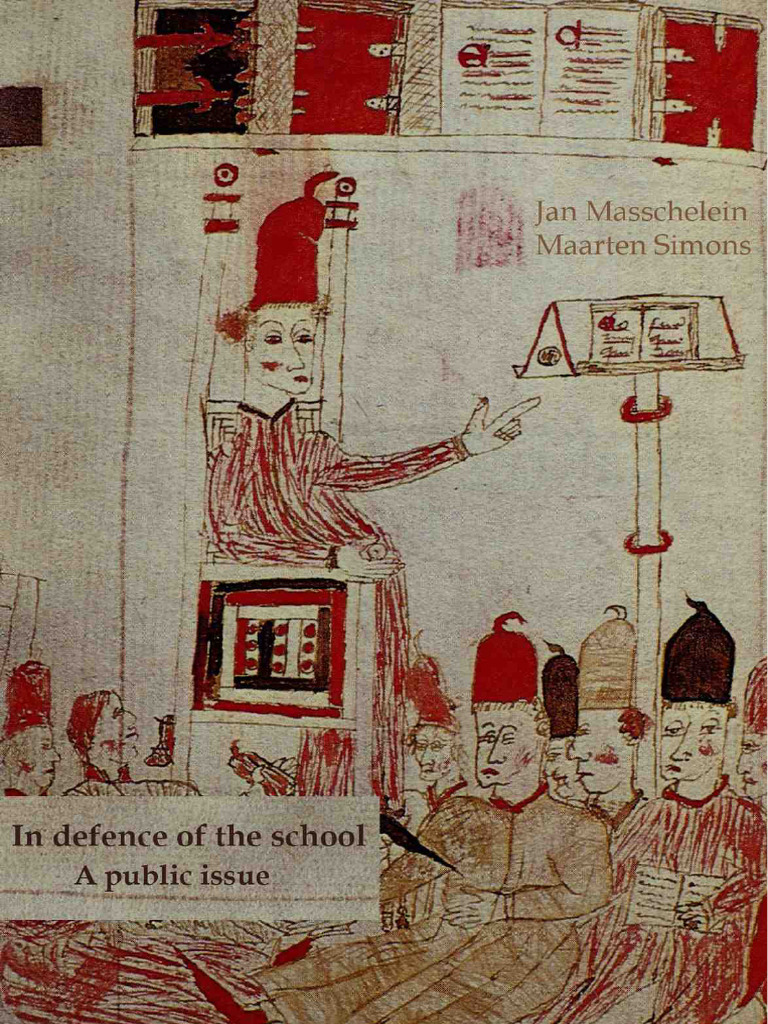 Jan Masschelein
Maarten Simons
In defence of the school
A public issue